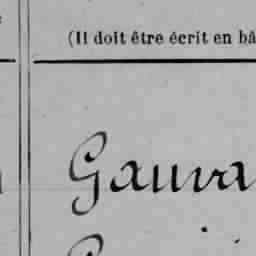 (Il doit être écrit en bâ
Gauva